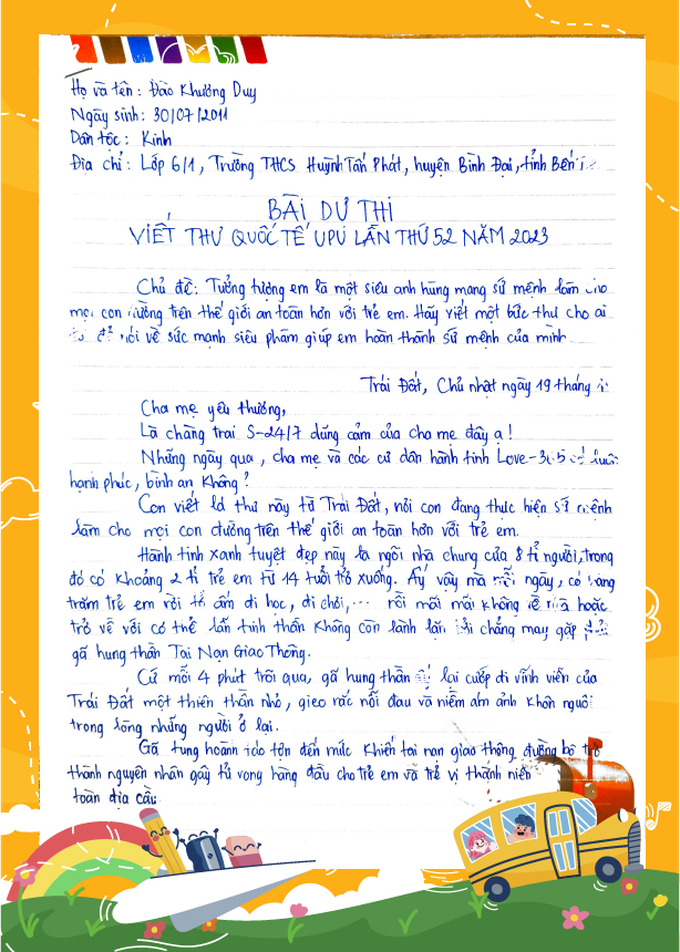 Họ và tên : Đào Khương Duy
Ngày sinh : 30/07/2011
Dân tộc : Kinh
Địa chỉ : Lớp 6/1, Trường THCS Huỳnh Tấn Phát, huyện Bình Đại, tỉnh Bến
BÀI DỰ THI
VIẾT THƯ QUỐC TẾ UPU LẦN THỨ 52 NĂM 2023
Chủ đề: Tưởng tượng em là một siêu anh hùng mang sứ mệnh làm cho
mọi con đường trên thế giới an toàn hơn với trẻ em. Hãy viết một bức thư cho ai
để nói về sức mạnh siêu phàm giúp em hoàn thành sứ mệnh của mình
Trái Đất, Chủ nhật ngày 19 tháng
Cha mẹ yêu thương,
Là chàng trai S-24/7 dũng cảm của cha mẹ đây ạ!
Những ngày qua, cha mẹ và các cư dân hành tinh Love-365 có
hạnh phúc, bình an không?
Con viết lá thư này từ Trái Đất, nơi con đang thực hiện sứ mệnh
làm cho mọi con đường trên thế giới an toàn hơn với trẻ em.
Hành tinh xanh tuyệt đẹp này là ngôi nhà chung của 8 tỉ người, trong
đó có khoảng 2 tỉ trẻ em từ 14 tuổi trở xuống. Ấy vậy mà mỗi ngày, có hàng
trăm trẻ em rời tổ ấm đi học, đi chơi,... rồi mãi mãi không về nhà hoặc
trở về với cơ thể lẫn tinh thần không còn lành lặn bởi chẳng may gặp phải
gã hung thần Tai Nạn Giao Thông.
Cứ mỗi 4 phút trôi qua, gã hung thần ấy lại cướp đi vĩnh viễn của
Trái Đất một thiên thần nhỏ, gieo rắc nỗi đau và niềm ám ảnh khôn nguôi
trong lòng những người ở lại.
Gã tung hoành táo tợn đến mức khiến tai nạn giao thông đường bộ trở
thành nguyên nhân gây tử vong hàng đầu cho trẻ em và trẻ vị thành niên
toàn địa cầu.